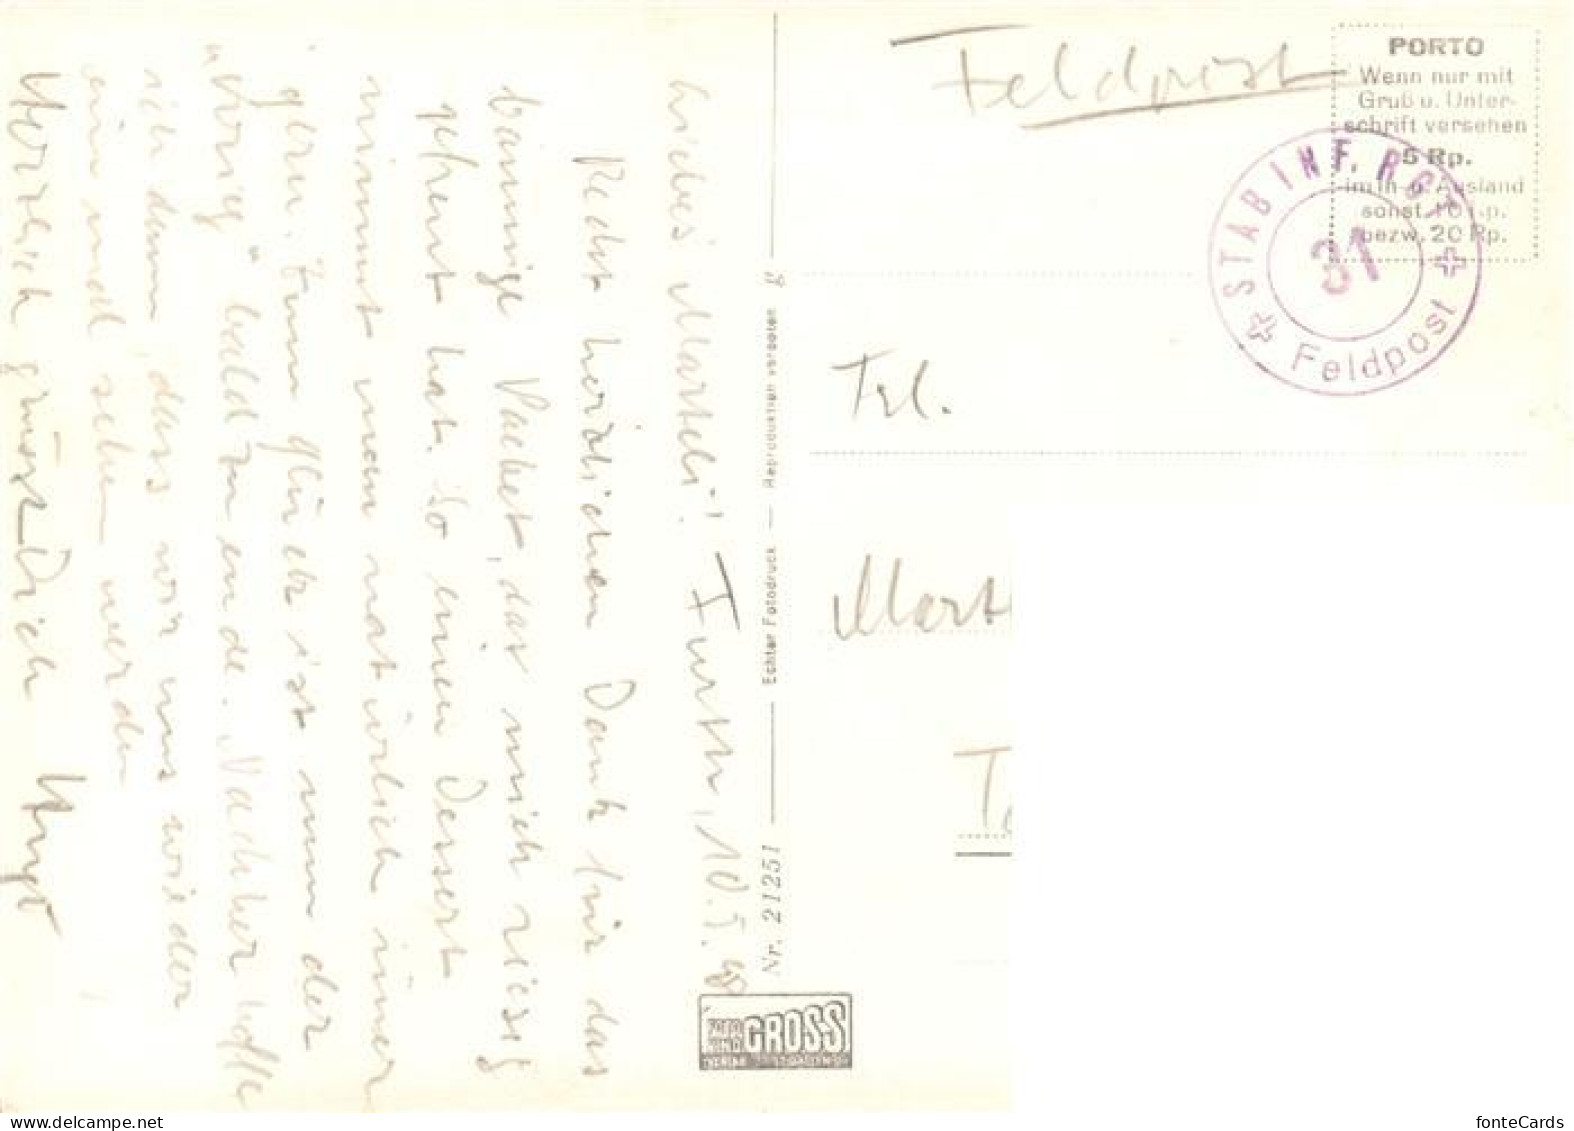 Liebes Marteli! Furth, 10.5.48
Recht herzlichen Dank für das
bäumige Packet, das mich riesig
gefreut hat. So einen Dessert
nimmt man natürlich immer
gern. Zum Glück ist nun der
" bald zu ende. Nachher hoffe
ich dann, dass wir uns wieder
ein mal sehen werden
Herzlich grüsst Dich Hugo
Nr. 21251 — Echter Fotodruck — Reproduktion verboten
GROSS
Feldpost
PORTO
Wenn nur mit
Gruß u. Unter-
schrift versehen
5 Rp.
im In- u. Ausland
sonst 10 Rp.
bezw. 20 Rp.
STAB INF. RGT.
31
Feldpost
Frl.
Mart
fonteCards